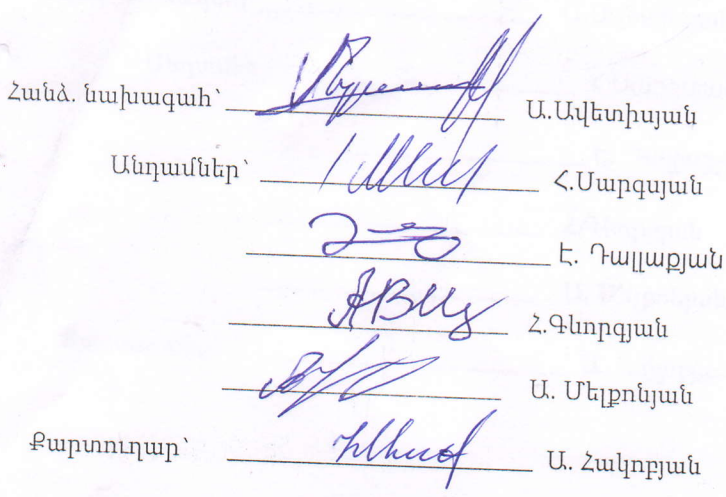 Հանձ. նախագահ՝ Ա.Ավետիսյան
Անդամներ՝ Հ.Սարգսյան
Է. Դալլաքյան
Հ.Գևորգյան
Ա. Մելքոնյան
Քարտուղար՝ Ա. Հակոբյան